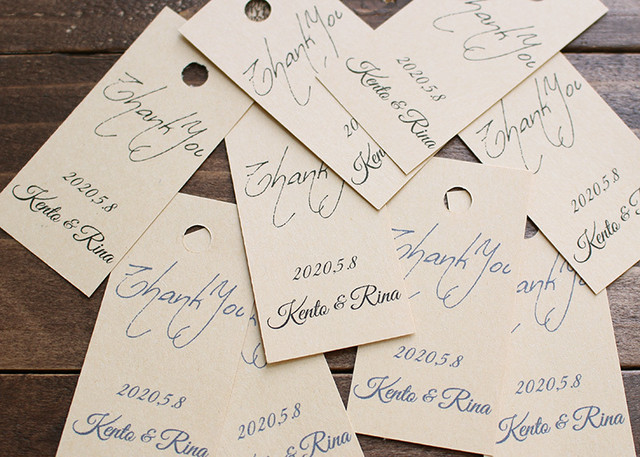 Thank You
2020.5.8
Kento & Rina
Thank You
20
Ken
Thank You
2020.5.8
Kento & Rina
Thank You
2020.5.8
Kento & Rina
Thank
2020.5.8
Kento & Rina
Thank You
2020.5.8
Kento & Rina
2020.5.8
Kento & Rina
Thank You
2020.5.8
Kento & Rina
You
2020.5.8
Kento & Rina